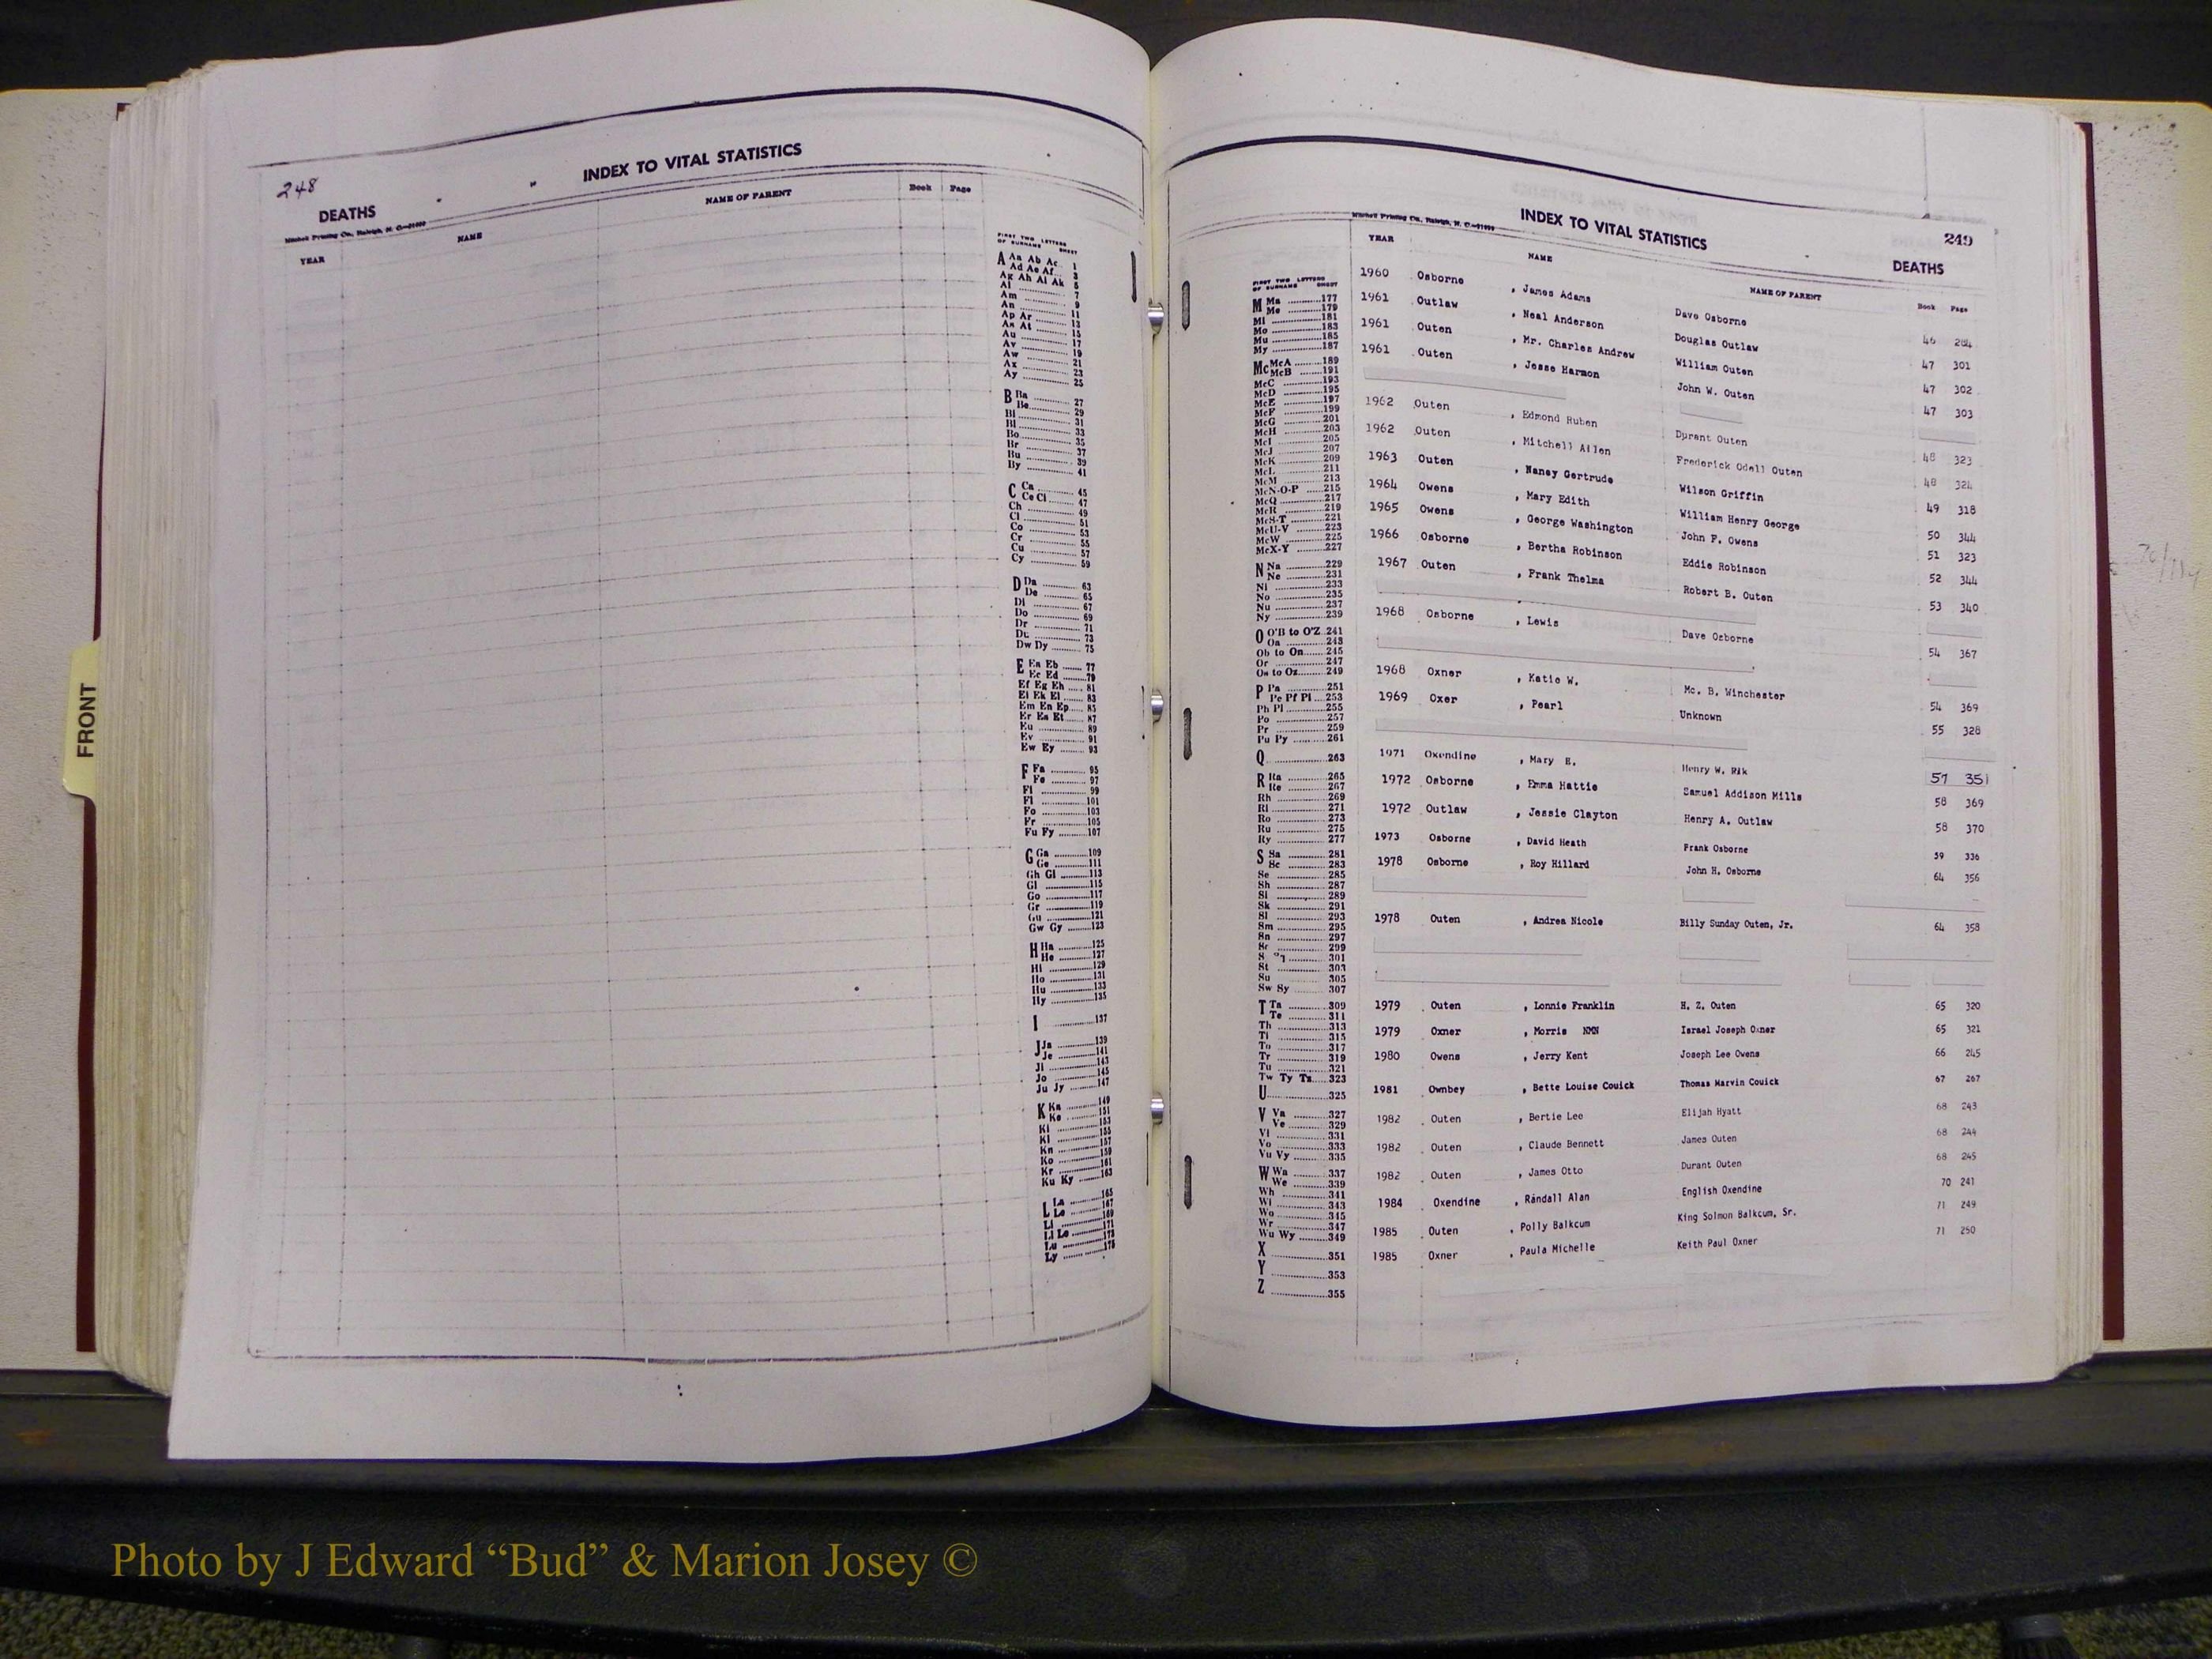 FRONT
248
INDEX TO VITAL STATISTICS
DEATHS
Mitchell Printing Co., Raleigh, N. C.
YEAR NAME NAME OF PARENT Book Page
FIRST TWO LETTERS
OF SURNAME SHEET
A Aa Ab Ac 1
Ad Ae Af 3
Ag Ah Ai Ak 5
Al 7
Am 9
An 11
Ap Ar 13
As At 15
Au 17
Av 19
Aw 21
Ax 23
Ay 25
B Ba 27
Be 29
Bi 31
Bl 33
Bo 35
Br 37
Bu 39
By 41
C Ca 45
Ce Ci 47
Ch 49
Cl 51
Co 53
Cr 55
Cu 57
Cy 59
D Da 63
De 65
Di 67
Do 69
Dr 71
Du 73
Dw Dy 75
E Ea Eb 77
Ec Ed 79
Ef Eg Eh 81
Ei Ek El 83
Em En Ep 85
Er Es Et 87
Eu 89
Ev 91
Ew Ey 93
F Fa 95
Fe 97
Fi 99
Fl 101
Fo 103
Fr 105
Fu Fy 107
G Ga 109
Ge 111
Gh Gi 113
Gl 115
Go 117
Gr 119
Gu 121
Gw Gy 123
H Ha 125
He 127
Hi 129
Ho 131
Hu 133
Hy 135
I 137
J Ja 139
Je 141
Ji 143
Jo 145
Ju Jy 147
K Ka 149
Ke 151
Ki 153
Kl 155
Kn 157
Ko 159
Kr 161
Ku Ky 163
L La 165
Le 167
Li 169
Ll Lo 171
Lu 173
Ly 175
INDEX TO VITAL STATISTICS
249
DEATHS
Mitchell Printing Co., Raleigh, N. C.
YEAR NAME NAME OF PARENT Book Page
FIRST TWO LETTERS
OF SURNAME SHEET
M Ma 177
Me 179
Mi 181
Mo 183
Mu 185
My 187
Mc McA 189
McB 191
McC 193
McD 195
McE 197
McF 199
McG 201
McH 203
McI 205
McJ 207
McK 209
McL 211
McM 213
McN-O-P 215
McQ 217
McR 219
McS-T 221
McU-V 223
McW 225
McX-Y 227
N Na 229
Ne 231
Ni 233
No 235
Nu 237
Ny 239
O O'B to O'Z 241
Oa 243
Ob to On 245
Or 247
Os to Oz 249
P Pa 251
Pe Pf Pi 253
Ph Pl 255
Po 257
Pr 259
Pu Py 261
Q 263
R Ra 265
Re 267
Rh 269
Ri 271
Ro 273
Ru 275
Ry 277
S Sa 281
Sc 283
Se 285
Sh 287
Si 289
Sk 291
Sl 293
Sm 295
Sn 297
299
301
St 303
Su 305
Sw Sy 307
T Ta 309
Te 311
Th 313
Ti 315
To 317
Tr 319
Tu 321
Tw Ty Tz 323
U 325
V Va 327
Ve 329
Vi 331
Vo 333
Vu Vy 335
W Wa 337
We 339
Wh 341
Wi 343
Wo 345
Wr 347
Wu Wy 349
X 351
Y 353
Z 355
1960 Osborne , James Adams Dave Osborne 46 284
1961 Outlaw , Neal Anderson Douglas Outlaw 47 301
1961 Outen , Mr. Charles Andrew William Outen 47 302
1961 Outen , Jesse Harmon John W. Outen 47 303
1962 Outen , Edmond Ruben Durant Outen 48 323
1962 Outen , Mitchell Allen Frederick Odell Outen 48 324
1963 Outen , Nancy Gertrude Wilson Griffin 49 318
1964 Owens , Mary Edith William Henry George 50 344
1965 Owens , George Washington John F. Owens 51 323
1966 Osborne , Bertha Robinson Eddie Robinson 52 344
1967 Outen , Frank Thelma Robert B. Outen 53 340
1968 Osborne , Lewis Dave Osborne 54 367
1968 Oxner , Katie W. Mc. B. Winchester 54 369
1969 Oxer , Pearl Unknown 55 328
1971 Oxendine , Mary E. Henry W. Rik 57 351
1972 Osborne , Emma Hattie Samuel Addison Mills 58 369
1972 Outlaw , Jessie Clayton Henry A. Outlaw 58 370
1973 Osborne , David Heath Frank Osborne 59 336
1978 Osborne , Roy Hillard John H. Osborne 64 356
1978 Outen , Andrea Nicole Billy Sunday Outen, Jr. 64 358
1979 Outen , Lonnie Franklin H. Z. Outen 65 320
1979 Oxner , Morris NMN Israel Joseph Oxner 65 321
1980 Owens , Jerry Kent Joseph Lee Owens 66 245
1981 Ownbey , Bette Louise Couick Thomas Marvin Couick 67 267
1982 Outen , Bertie Lee Elijah Hyatt 68 243
1982 Outen , Claude Bennett James Outen 68 244
1982 Outen , James Otto Durant Outen 68 245
1984 Oxendine , Randall Alan English Oxendine 70 241
1985 Outen , Polly Balkcum King Solmon Balkcum, Sr. 71 249
1985 Oxner , Paula Michelle Keith Paul Oxner 71 250
Photo by J Edward “Bud” & Marion Josey ©